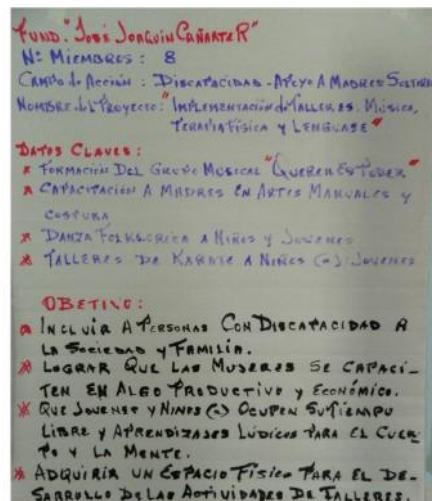 FUND. "José Joaquin Cañarte R"
Nº Miembros : 8
Campo de Acción : Discapacidad - Apoyo A Madres Solteras
Nombre del Proyecto : "Implementación de Talleres. Música,
Terapia Física y Lenguaje"
Datos Claves :
* Formación Del Grupo Musical "Querer Es Poder"
* Capacitación A Madres En Artes Manuales y
costura
* Danza Folklorica a Niños y Jovenes
* Talleres De Karate a Niños (as) Jovenes
OBETIVO :
* Incluir A Personas Con Discapacidad A
La Sociedad y Familia.
* Lograr Que Las Mujeres Se Capaci-
ten En Algo Productivo y Económico.
* Que Jovenes y Ninos (as) Ocupen Su Tiempo
Libre y Aprendizajes Lúdicos Para El Cuer-
po y La Mente.
* Adquirir un Espacio Físico Para El De-
sarrollo De Las Actividades De Talleres.